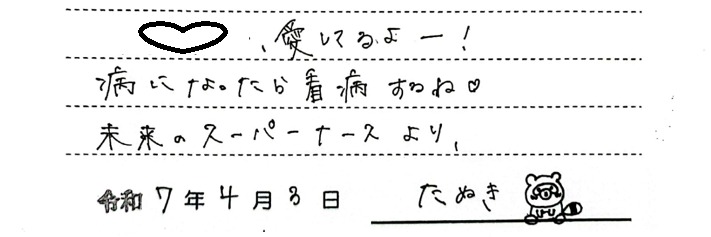 、愛してるよー!
病になったら看病するね♡
未来のスーパーナースより、
令和7年4月3日 たぬき